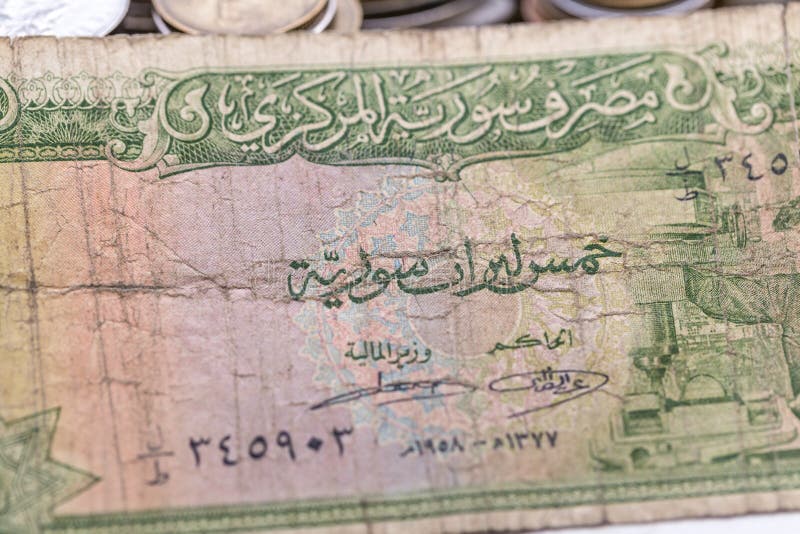 مصرف سورية المركزي
٣٤٥
خمس ليرات سورية
الحاكم وزير المالية
١٣٧٧هـ - ١٩٥٨م
٣٤٥٩٠٣